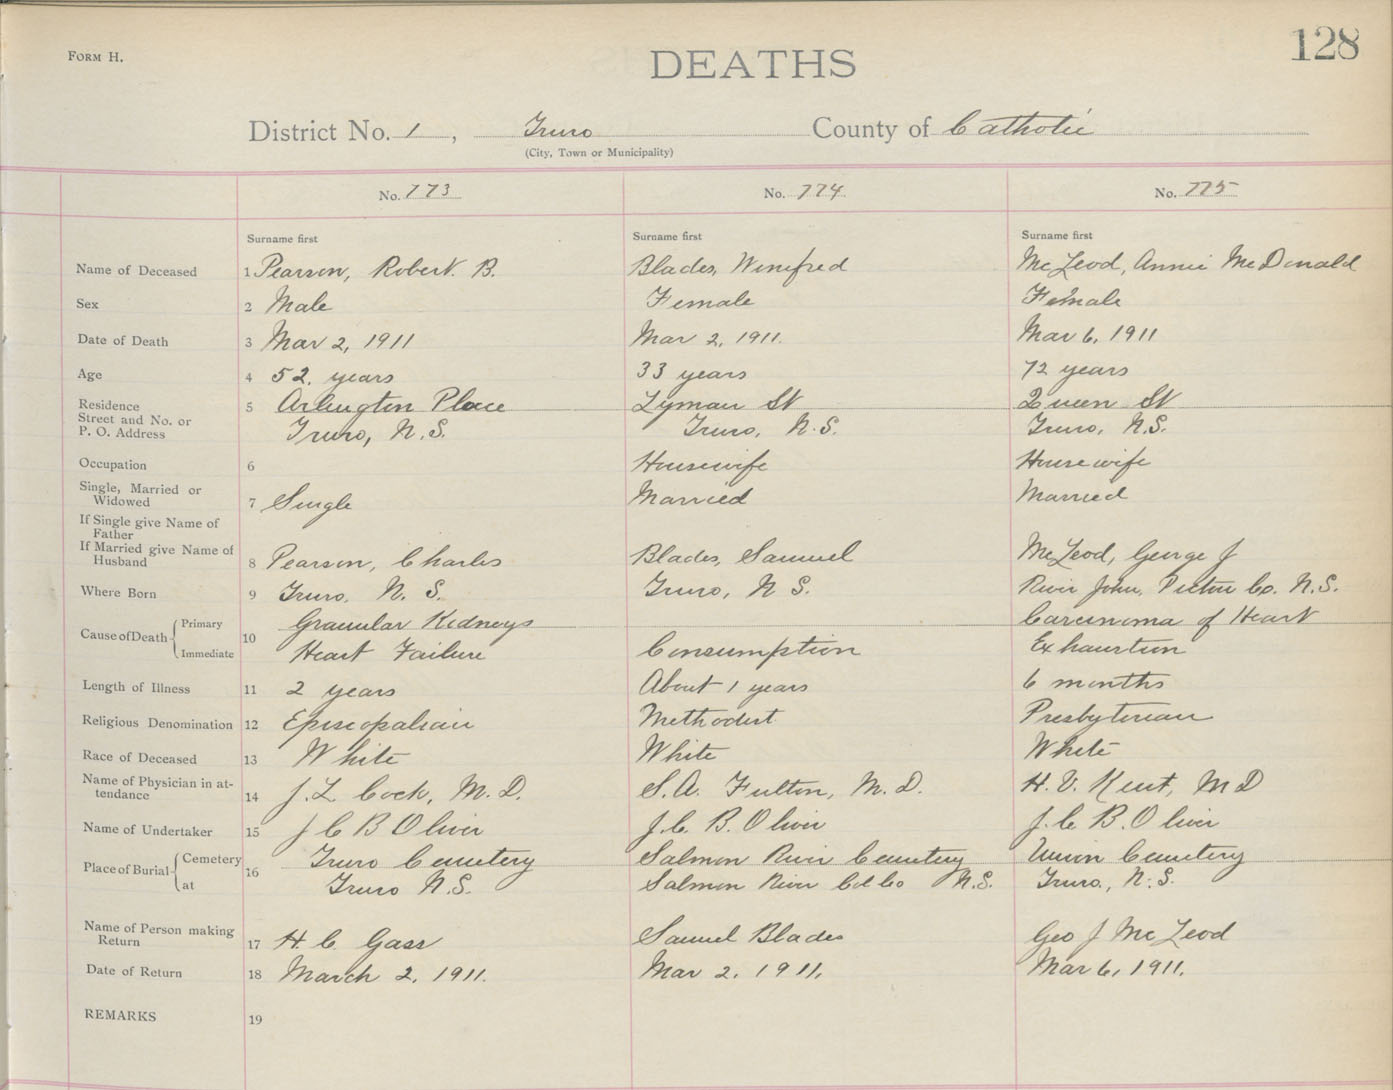 FORM H.
DEATHS
128
District No. 1, Truro County of Catholic
(City, Town or Municipality)
No. 773 No. 774 No. 775
Surname first Surname first Surname first
Name of Deceased 1 Pearson, Robert B. Blades, Winifred McLeod, Annie McDonald
Sex 2 Male Female Female
Date of Death 3 Mar 2, 1911 Mar 2, 1911. Mar 6, 1911
Age 4 52, years 33 years 72 years
Residence 5 Arlington Place Lyman St Queen St
Street and No. or
P. O. Address Truro, N.S. Truro, N.S. Truro, N.S.
Occupation 6 Housewife Housewife
Single, Married or
Widowed 7 Single Married Married
If Single give Name of
Father
If Married give Name of
Husband 8 Pearson, Charles Blades, Samuel McLeod, George J
Where Born 9 Truro, N. S. Truro, N S. River John, Pictou Co. N.S.
Cause of Death Primary 10 Granular Kidneys Carcinoma of Heart
Immediate Heart Failure Consumption Exhaustion
Length of Illness 11 2 years About 1 years 6 months
Religious Denomination 12 Episcopalian Methodist Presbyterian
Race of Deceased 13 White White White
Name of Physician in at-
tendance 14 J. L Cock, M.D. S.A. Fulton, M.D. H.V. Kent, MD
Name of Undertaker 15 J C B Oliver J.C. B. Oliver J.C B. Oliver
Place of Burial Cemetery 16 Truro Cemetery Salmon River Cemetery Union Cemetery
at Truro N.S. Salmon River Col Co N.S. Truro, N.S.
Name of Person making
Return 17 H. C Gass Samuel Blades Geo J McLeod
Date of Return 18 March 2, 1911. Mar 2. 1911. Mar 6, 1911.
REMARKS 19